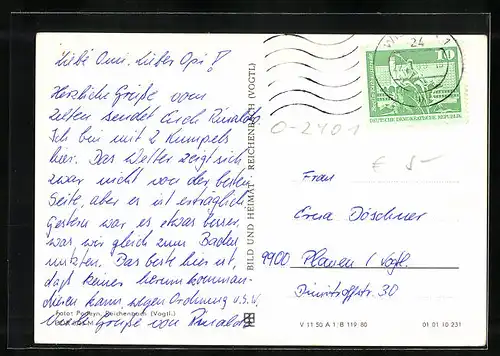 Liebe Omi, Lieber Opi!
Herzliche Grüße vom
Zelten sendet Euch Rinaldo.
Ich bin mit 2 Kumpels
hier. Das Wetter zeigt sich
zwar nicht von der besten
Seite, aber es ist erträglich
Gestern war es etwas besser,
was wir gleich zum Baden
nutzten. Das beste hier ist,
daß keiner herumkomman-
dieren kann wegen Ordnung u.s.w.
Foto: Reichenbach (Vogtl.)
Grüße von Rinaldo
BILD UND HEIMAT · REICHENBACH (VOGTL)
24
10
DEUTSCHE DEMOKRATISCHE REPUBLIK
0-2401
€ 5-
Frau
Erna Döschner
9900 Plauen / Vogtl.
Dimitroffstr. 30
V 11 50 A 1/B 119/80
01 01 10 231